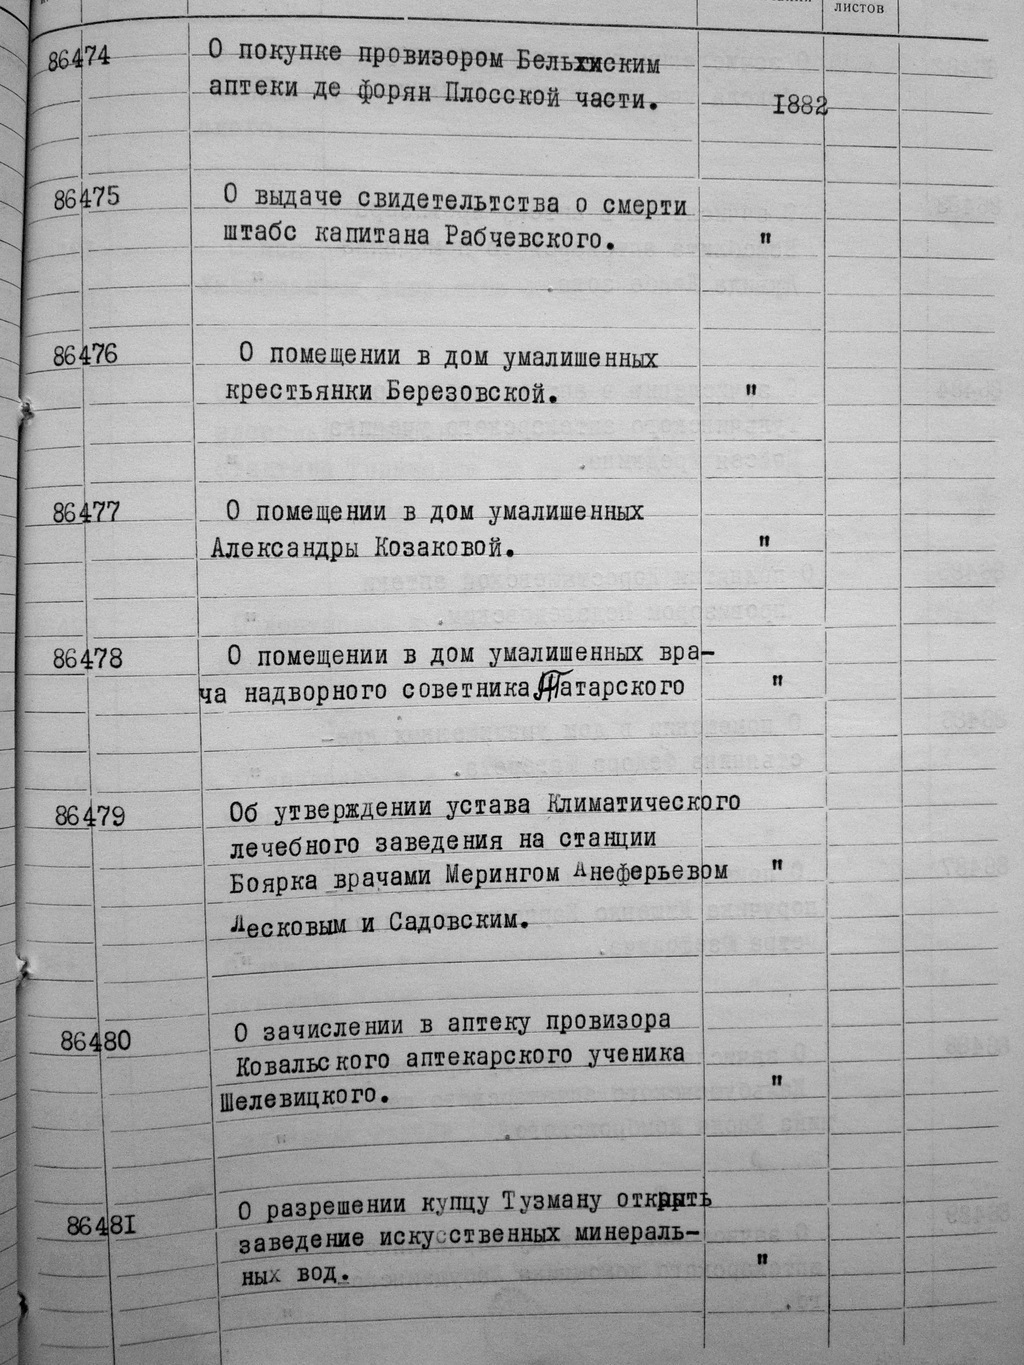 листов
86474 О покупке провизором Бельхиским
аптеки де форян Плосской части. 1882
86475 О выдаче свидетельтства о смерти
штабс капитана Рабчевского. "
86476 О помещении в дом умалишенных
крестьянки Березовской. "
86477 О помещении в дом умалишенных
Александры Козаковой. "
86478 О помещении в дом умалишенных вра-
ча надворного советника Татарского "
86479 Об утверждении устава Климатического
лечебного заведения на станции
Боярка врачами Мерингом Анеферьевом "
Лесковым и Садовским.
86480 О зачислении в аптеку провизора
Ковальского аптекарского ученика
Шелевицкого. "
86481 О разрешении купцу Тузману открыть
заведение искусственных минераль-
ных вод. "